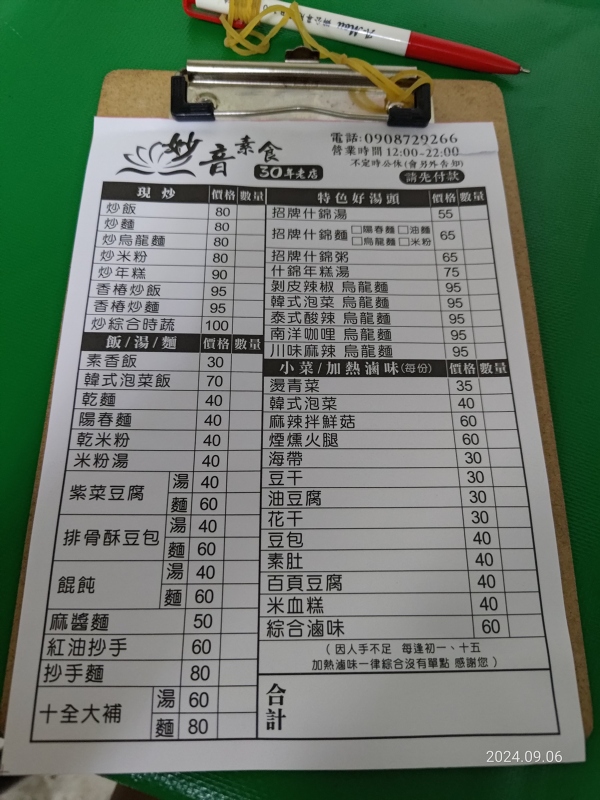 妙音素食
30年老店
電話:0908729266
營業時間12:00-22:00
不定時公休(會另外告知)
請先付款
現炒 價格 數量
炒飯 80
炒麵 80
炒烏龍麵 80
炒米粉 80
炒年糕 90
香椿炒飯 95
香椿炒麵 95
炒綜合時蔬 100
飯/湯/麵 價格 數量
素香飯 30
韓式泡菜飯 70
乾麵 40
陽春麵 40
乾米粉 40
米粉湯 40
紫菜豆腐 湯 40
麵 60
排骨酥豆包 湯 40
麵 60
餛飩 湯 40
麵 60
麻醬麵 50
紅油抄手 60
抄手麵 80
十全大補 湯 60
麵 80
特色好湯頭 價格 數量
招牌什錦湯 55
招牌什錦麵 □陽春麵 □油麵 □烏龍麵 □米粉 65
招牌什錦粥 65
什錦年糕湯 75
剝皮辣椒 烏龍麵 95
韓式泡菜 烏龍麵 95
泰式酸辣 烏龍麵 95
南洋咖哩 烏龍麵 95
川味麻辣 烏龍麵 95
小菜/加熱滷味(每份) 價格 數量
燙青菜 35
韓式泡菜 40
麻辣拌鮮菇 60
煙燻火腿 60
海帶 30
豆干 30
油豆腐 30
花干 30
豆包 40
素肚 40
百頁豆腐 40
米血糕 40
綜合滷味 60
(因人手不足 每逢初一、十五
加熱滷味一律綜合沒有單點 感謝您)
合計
2024.09.06